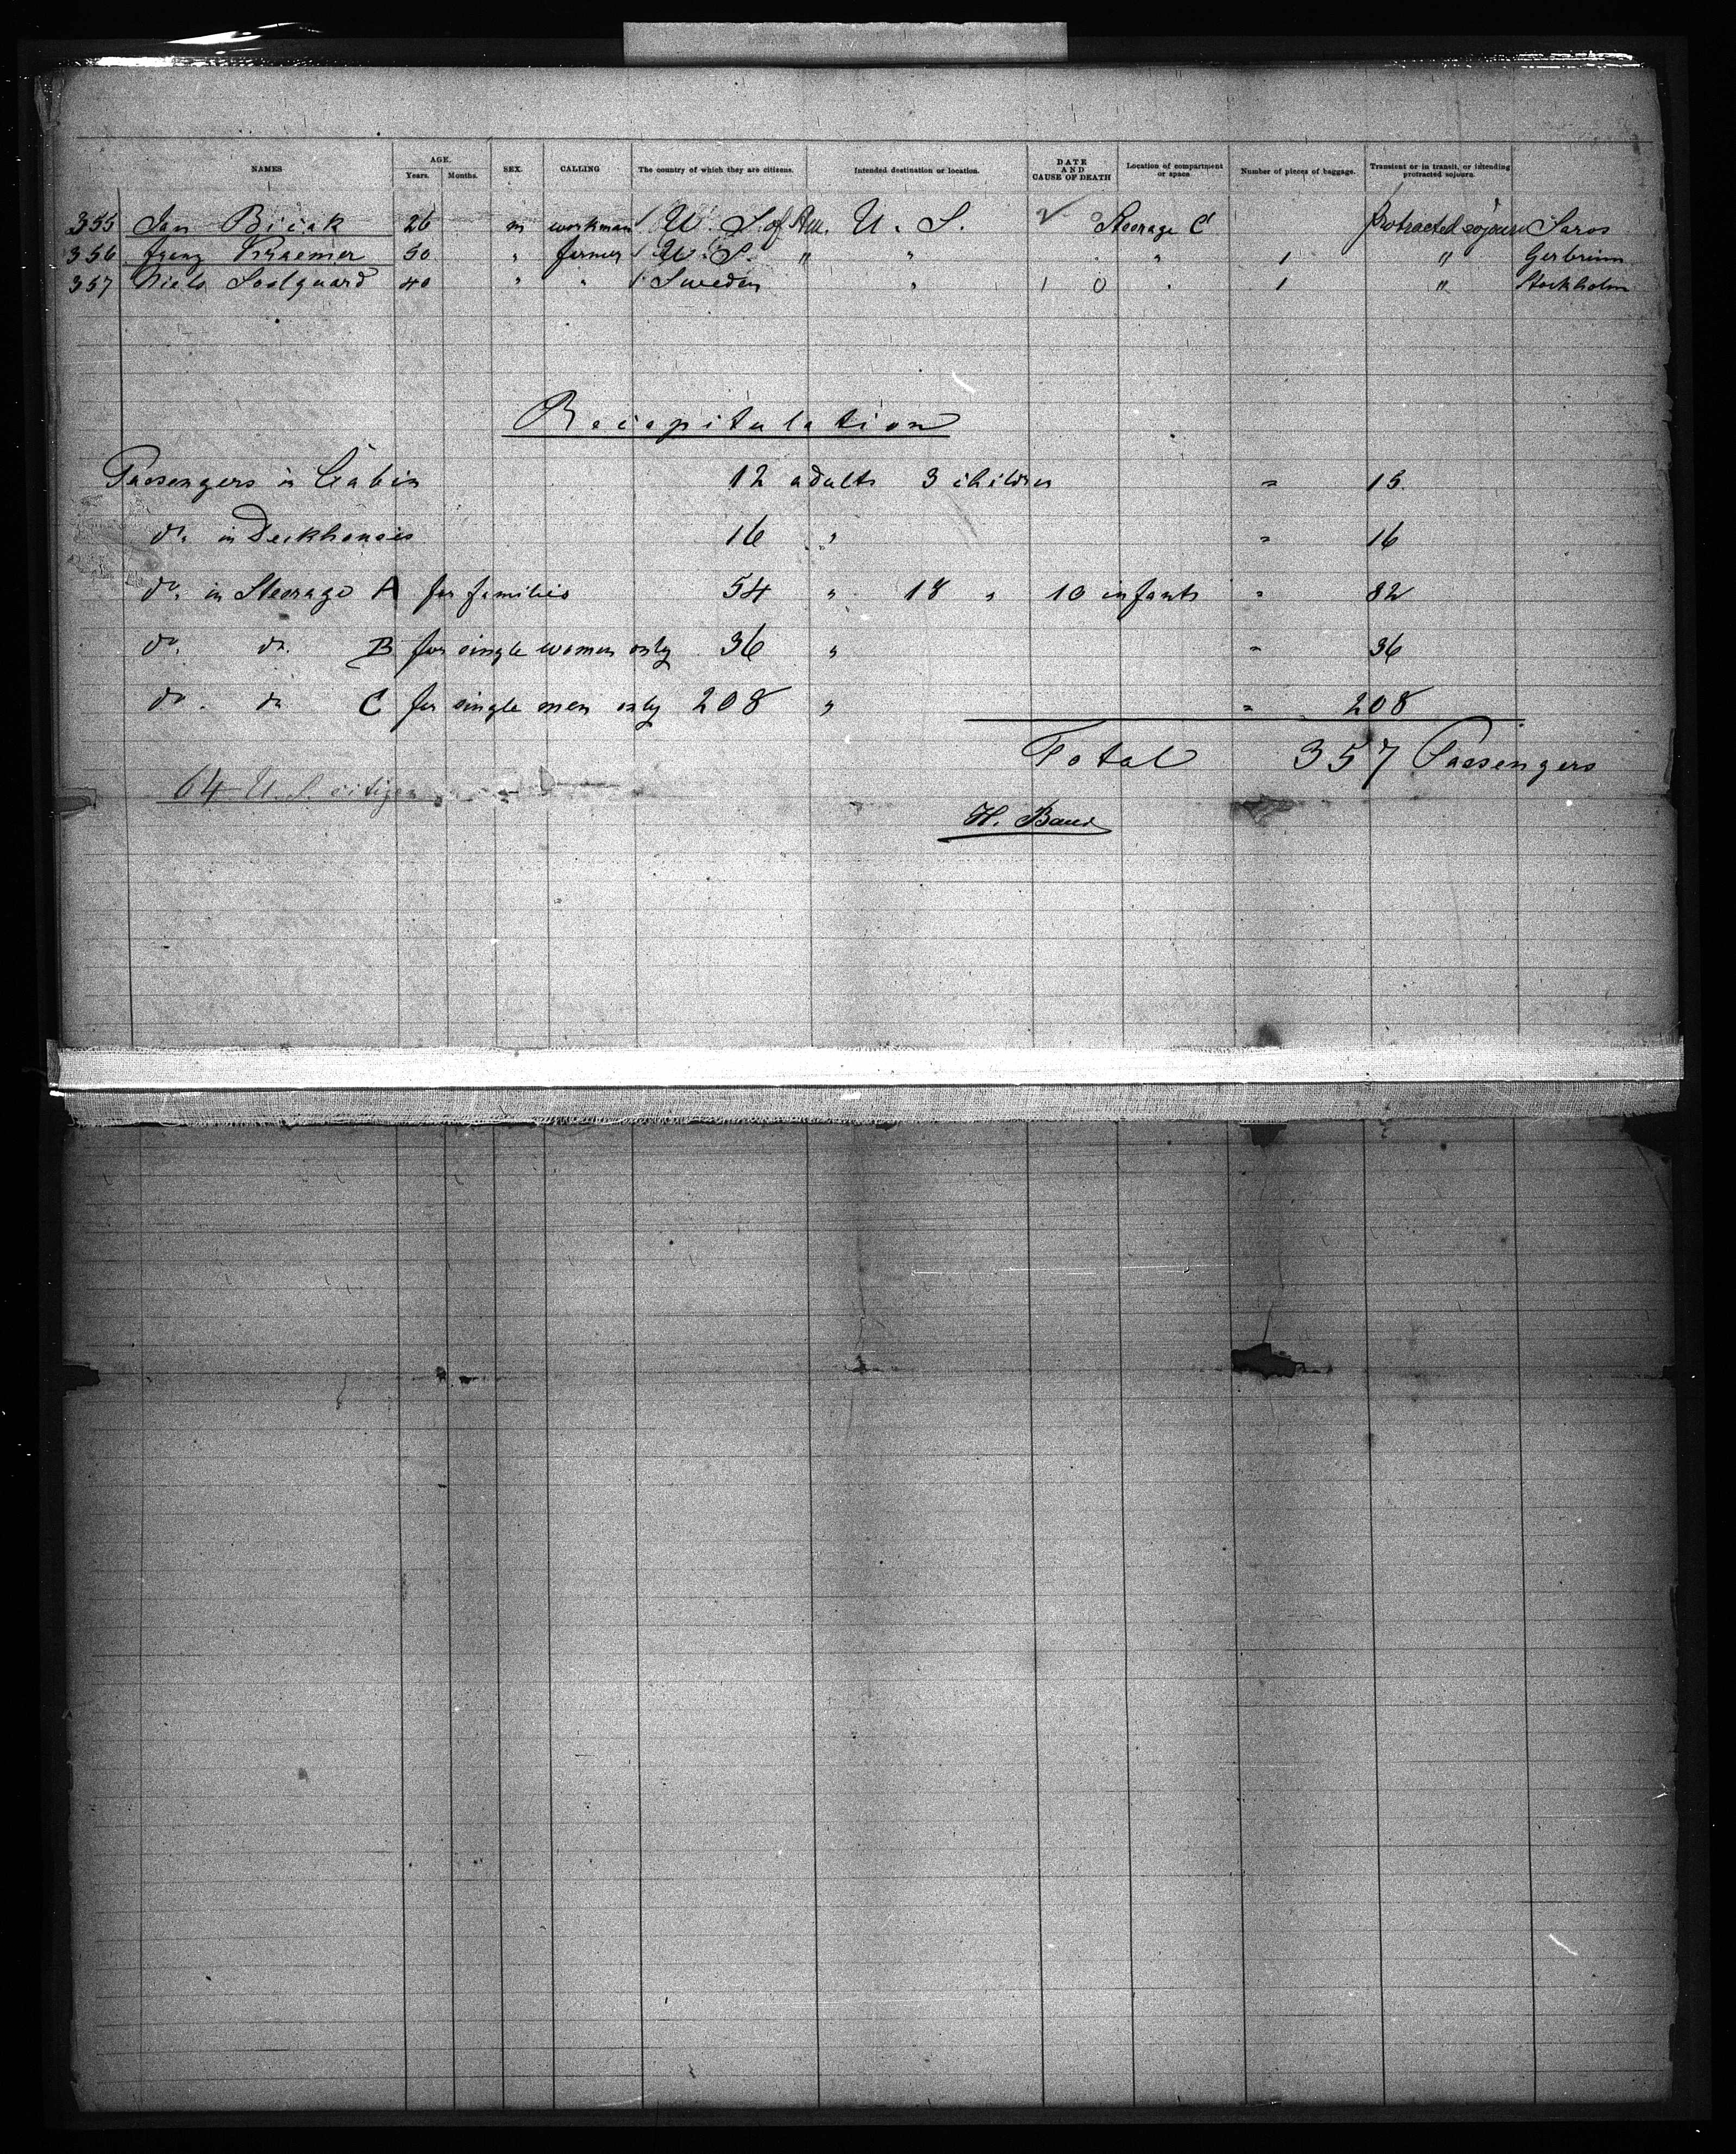 NAMES AGE. Years. Months. SEX. CALLING The country of which they are citizens. Intended destination or location. DATE AND CAUSE OF DEATH Location of compartment or space. Number of pieces of baggage. Transient or in transit, or intending protracted sojourn
355 Jan Biciak 26 m workman U. S. of Am. U. S. Steerage C Protracted sojourn Saros
356 Franz Kraemer 50 " farmer U. S. " " " " 1 "
357 Niels 40 " " Sweden " 1 0 " 1 " Stockholm
Recapitulation
Passengers in Cabin 12 adults 3 children = 15.
do. in Deckhouses 16 " = 16
do. in Steerage A for families 54 " 18 " 10 infants = 82
do. do. B for single women only 36 " = 36
do. do C for single men only 208 " = 208
Total 357 Passengers
64 U. S. citizen
H.